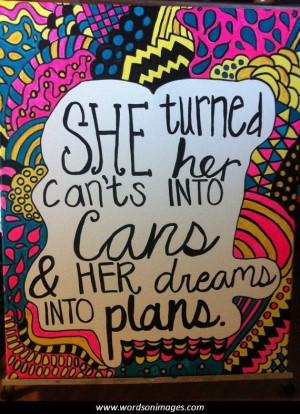 SHE turned
her
can'ts INTO
Cans
& HER dreams
INTO plans.
www.wordsonimages.com